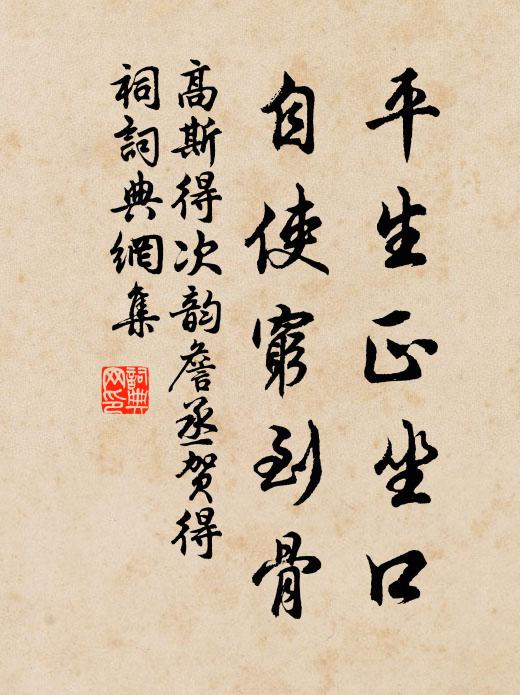 平生正坐口
自使窮到骨
高斯得次韵詹丞贺得
祠詞典網集
詞典
网印